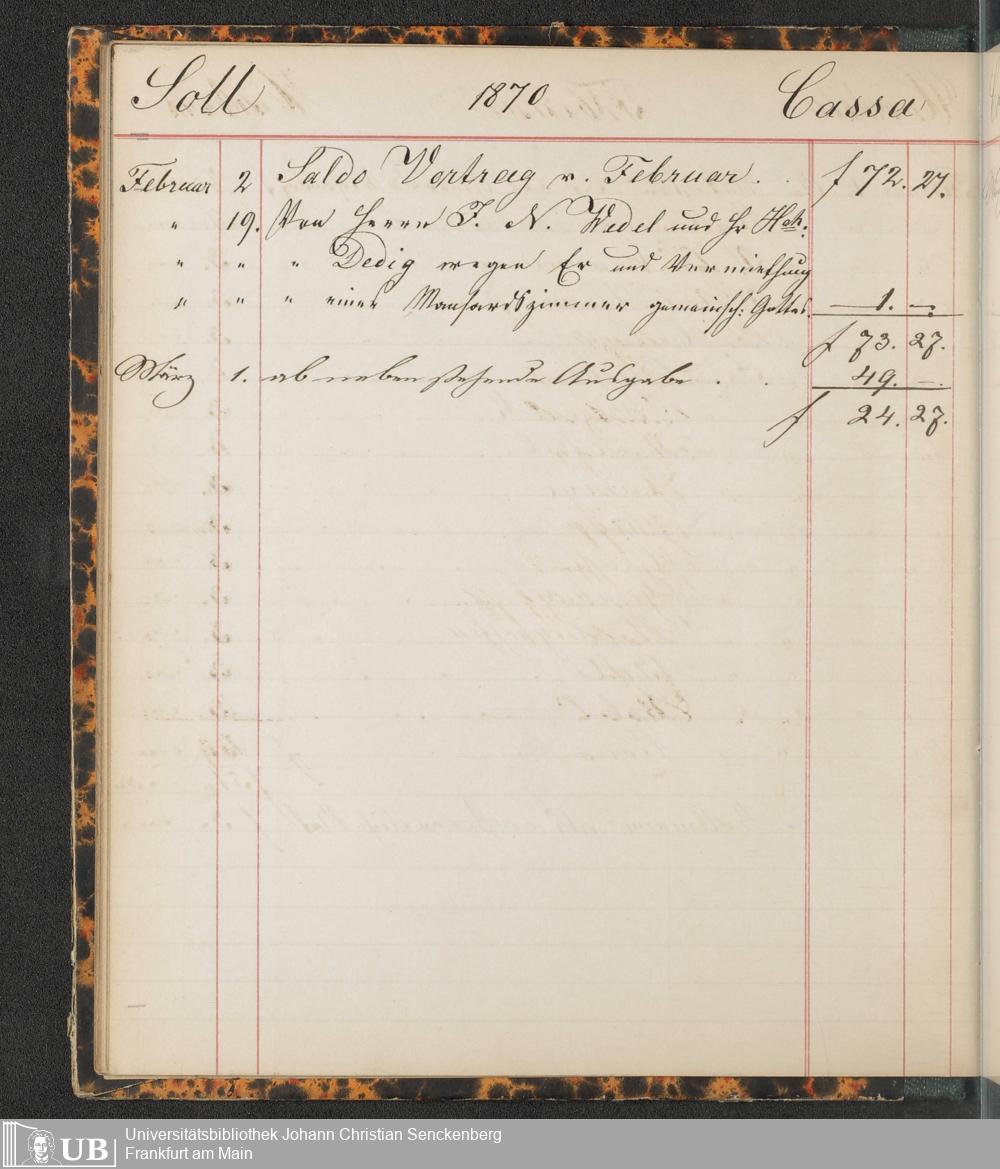 Soll 1870 Cassa
Februar 2 Saldo Vortrag v. Februar . . f 72. 27.
" 19. Von Herrn J. N. Wedel und Hr
" " " Dedig wegen Er und Vermiethung
" " " eines Mansardszimmer gemeinsch: Gottes. — 1. —.
f 73. 27.
März 1. ab nebenstehende Ausgabe . . 49. —.
f 24. 27.
UB Universitätsbibliothek Johann Christian Senckenberg
Frankfurt am Main